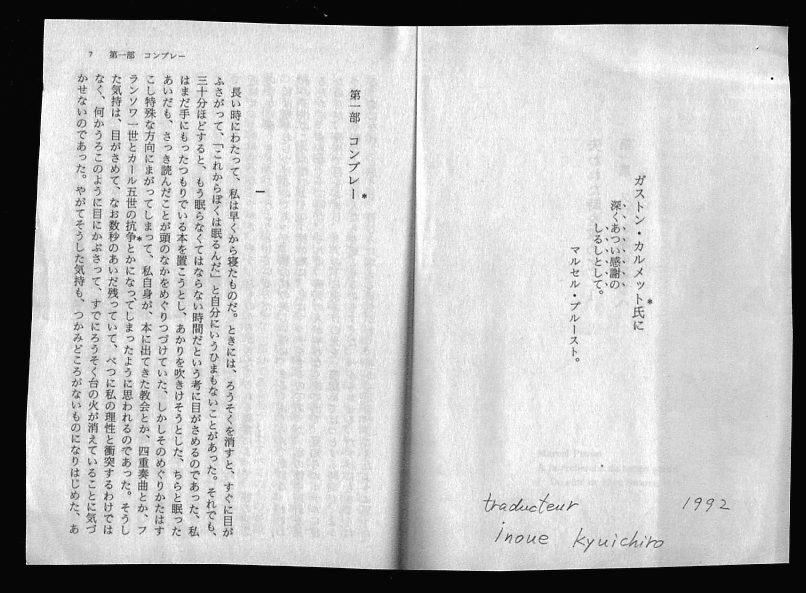 ガストン・カルメット*氏に
深くあつい感謝の
しるしとして。
マルセル・プルースト。
traducteur 1992
inoue kyuichiro
7 第一部 コンブレー
第一部 コンブレー*
一
長い時にわたって、私は早くから寝たものだ。ときには、ろうそくを消すと、すぐに目が
ふさがって、「これからぼくは眠るんだ」と自分にいうひまもないことがあった。それでも、
三十分ほどすると、もう眠らなくてはならない時間だという考に目がさめるのであった、私
はまだ手にもったつもりでいる本を置こうとし、あかりを吹きけそうとした、ちらと眠った
あいだも、さっき読んだことが頭のなかをめぐりつづけていた、しかしそのめぐりかたはす
こし特殊な方向にまがってしまって、私自身が、本に出てきた教会とか、四重奏曲とか、フ
ランソワ一世とカール五世の抗争*とかになってしまったように思われるのであった。そうし
た気持は、目がさめて、なお数秒のあいだ残っていて、べつに私の理性と衝突するわけでは
なく、何かうろこのように目にかぶさって、すでにろうそく台の火が消えていることに気づ
かせないのであった。やがてそうした気持も、つかみどころがないものになりはじめた、あ